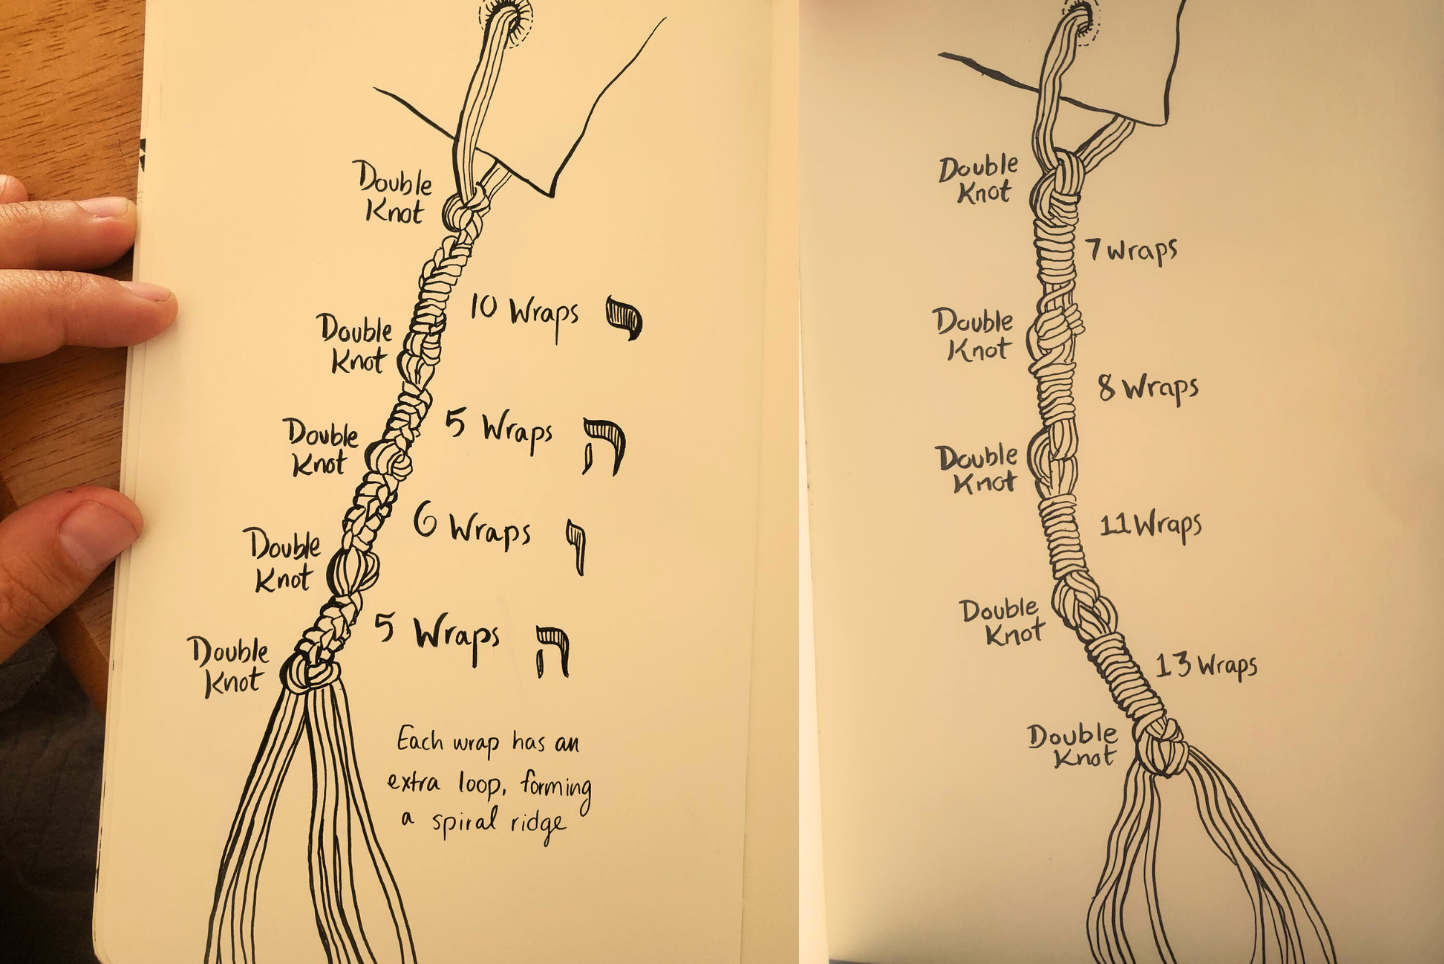 Double
Knot
10 Wraps י
Double
Knot
5 Wraps ה
Double
Knot
6 Wraps ו
Double
Knot
5 Wraps ה
Double
Knot
Each wrap has an
extra loop, forming
a spiral ridge
Double
Knot
7 wraps
Double
Knot
8 Wraps
Double
Knot
11 Wraps
Double
Knot
13 Wraps
Double
Knot